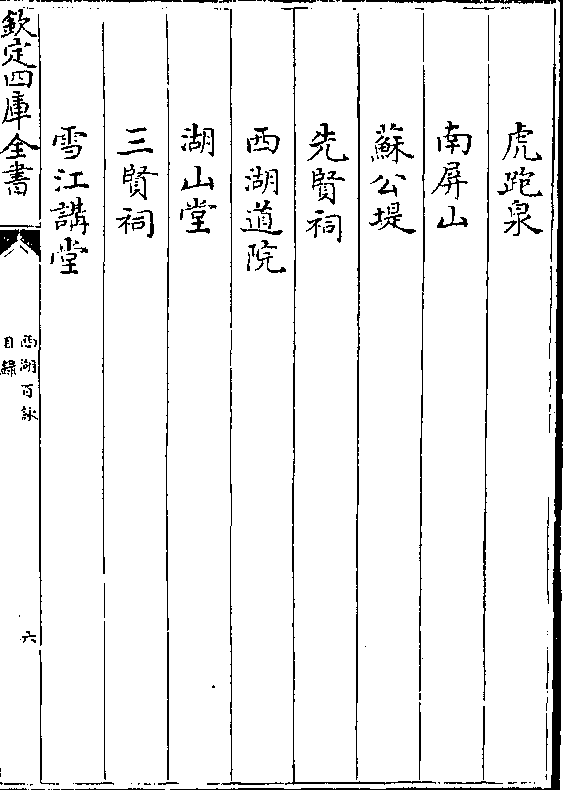 虎跑泉
南屏山
蘇公堤
先賢祠
西湖道院
湖山堂
三賢祠
雪江講堂
欽定四庫全書
西湖百詠
目録
六